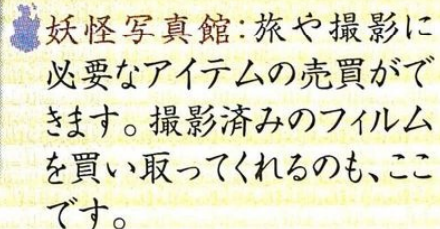 妖怪写真館：旅や撮影に
必要なアイテムの売買がで
きます。撮影済みのフィルム
を買い取ってくれるのも、ここ
です。